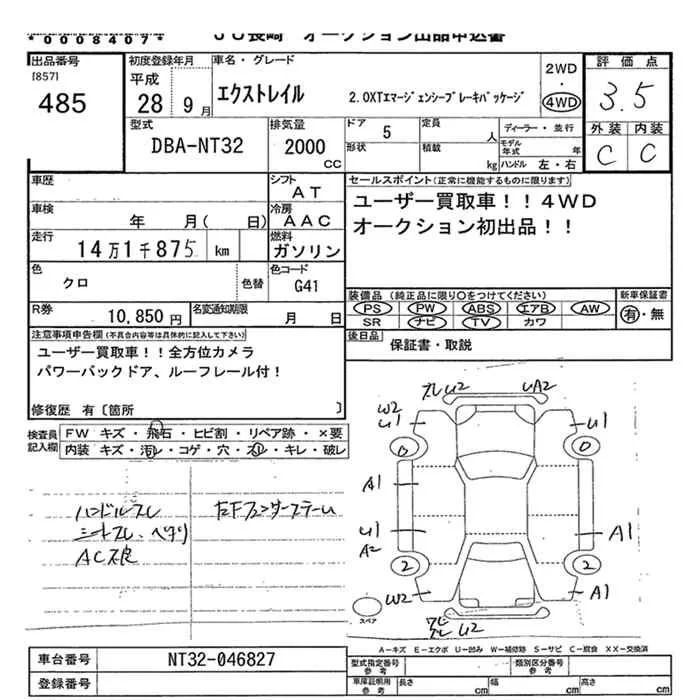 *0008407*
JU長崎 オークション出品申込書
出品番号
[857]
485
初度登録年月
平成
28 年 9 月
車名・グレード
エクストレイル 2.0XTエマージェンシーブレーキパッケージ
2WD
4WD
評価点
3.5
外装 内装
C C
型式
DBA-NT32
排気量
2000
CC
ドア 5
形状
定員 人
積載 kg
ディーラー・並行
モデル年式 年
ハンドル 左・右
車歴
シフト
AT
車検
年 月( 日)
冷房
AAC
走行
14万1千875 km
燃料
ガソリン
色
クロ
色替
色コード
G41
R券
10,850 円
名変通知期限
月 日
セールスポイント(正常に機能するものに限ります)
ユーザー買取車!!4WD
オークション初出品!!
装備品 (純正品に限り○をつけてください)
PS PW ABS エアB AW
SR ナビ TV カワ
新車保証書
有・無
後日品
保証書・取説
注意事項申告欄(不具合内容等は具体的に記入して下さい)
ユーザー買取車!!全方位カメラ
パワーバックドア、ルーフレール付!
修復歴 有〔箇所 〕
検査員記入欄
FW キズ・飛石・ヒビ割・リペア跡・×要
内装 キズ・汚レ・コゲ・穴・スレ・キレ・破レ
ハンドルスレ
シートスレ、ヘタリ
AC不良
スレ U2 UA2
W2
U1 U1
0 0
A1
U1
A2
A1
2 2
W2 A1
U2
スペア
A-キズ E-エクボ U-凹み W-補修跡 S-サビ C-腐食 XX-交換済
車台番号
NT32-046827
登録番号
型式指定番号
参考
類別区分番号
参考
車庫証明用
参考
長さ cm
幅 cm
高さ cm